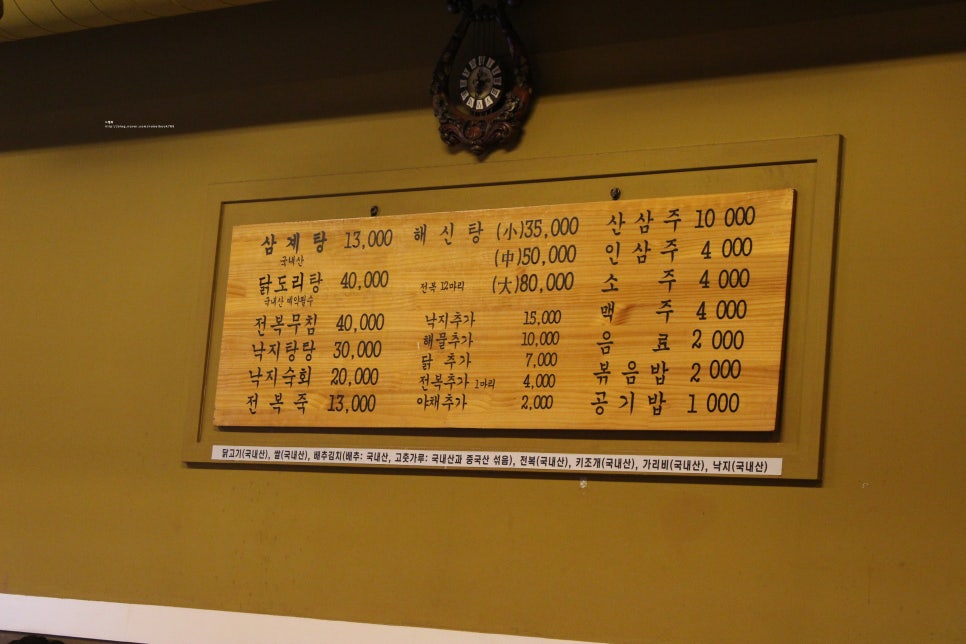 삼계탕 13,000
국내산
닭도리탕 40,000
국내산 예약필수
전복무침 40,000
낙지탕탕 30,000
낙지숙회 20,000
전복죽 13,000
해신탕 (小)35,000
(中)50,000
전복 12마리 (大)80,000
낙지추가 15,000
해물추가 10,000
닭 추가 7,000
전복추가 1마리 4,000
야채추가 2,000
산삼주 10 000
인삼주 4 000
소 주 4 000
맥 주 4 000
음 료 2 000
볶음밥 2 000
공기밥 1 000
닭고기(국내산), 쌀(국내산), 배추김치(배추: 국내산, 고춧가루: 국내산과 중국산 섞음), 전복(국내산), 키조개(국내산), 가리비(국내산), 낙지(국내산)